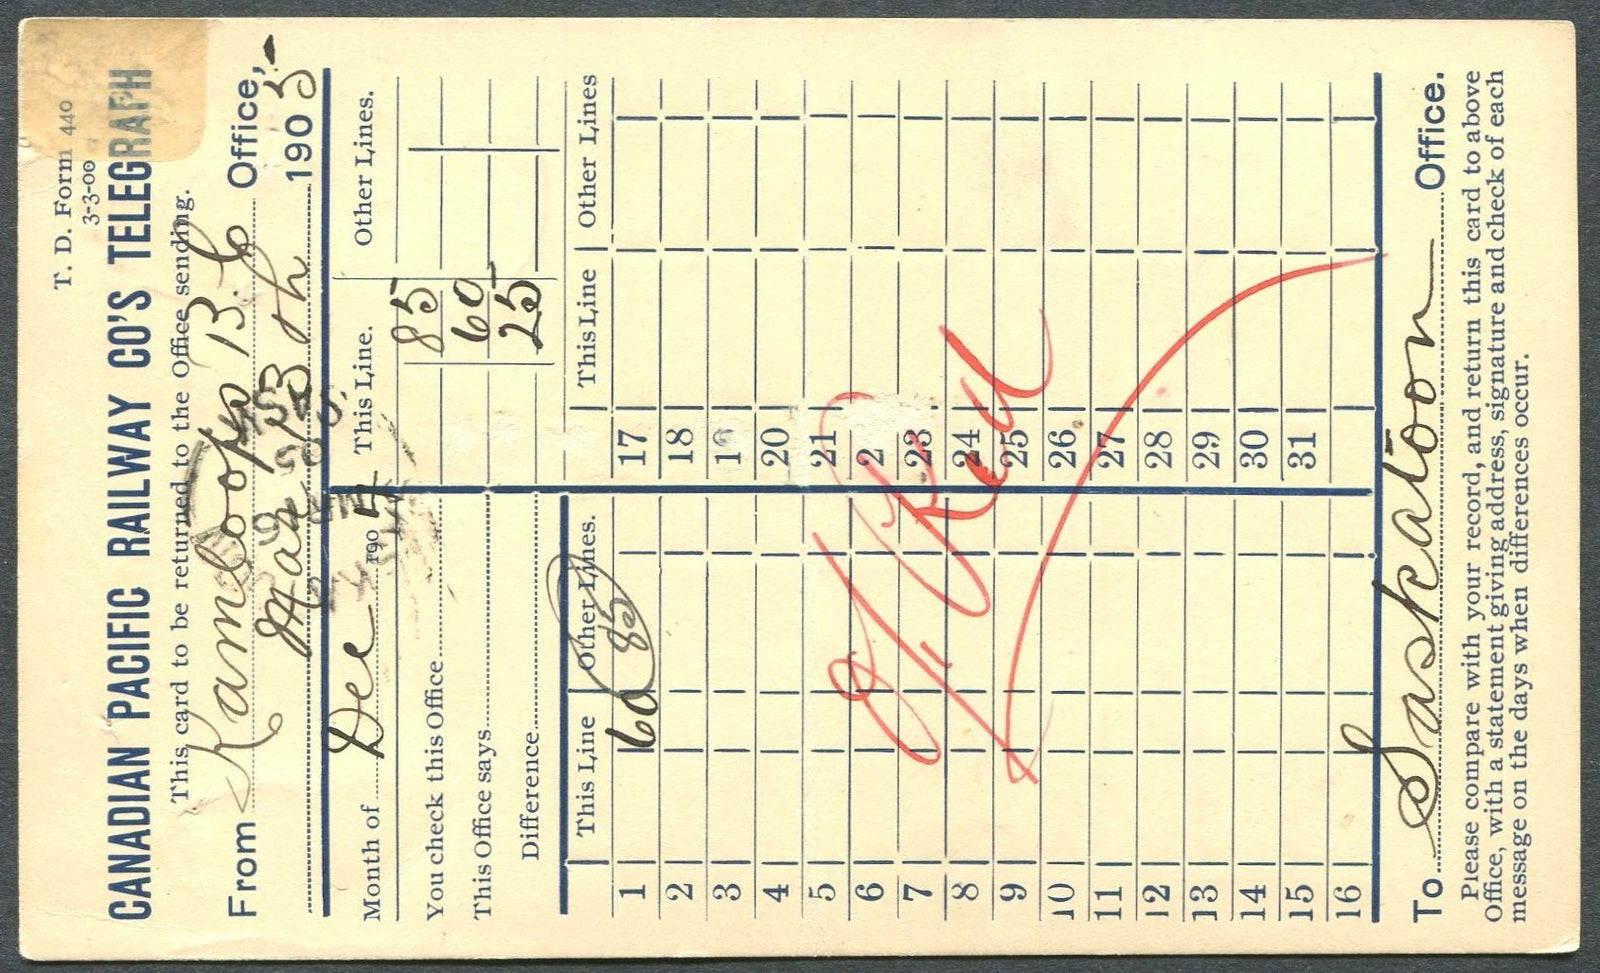 T. D. Form 440
3-3-00
CANADIAN PACIFIC RAILWAY CO'S TELEGRAPH
This card to be returned to the Office sending.
From Kamloops B.C Office,
Mar 13th 1905
Month of Dec 1904 This Line. Other Lines.
You check this Office 85
This Office says 60
Difference 25
This Line Other Lines. This Line Other Lines
1 60 85 17
2 18
3 19
4 20
5 21
6 2
7 23
8 24
9 25
10 26
11 27
12 28
13 29
14 30
15 31
16
OKed
To Saskatoon Office.
Please compare with your record, and return this card to above
Office, with a statement giving address, signature and check of each
message on the days when differences occur.